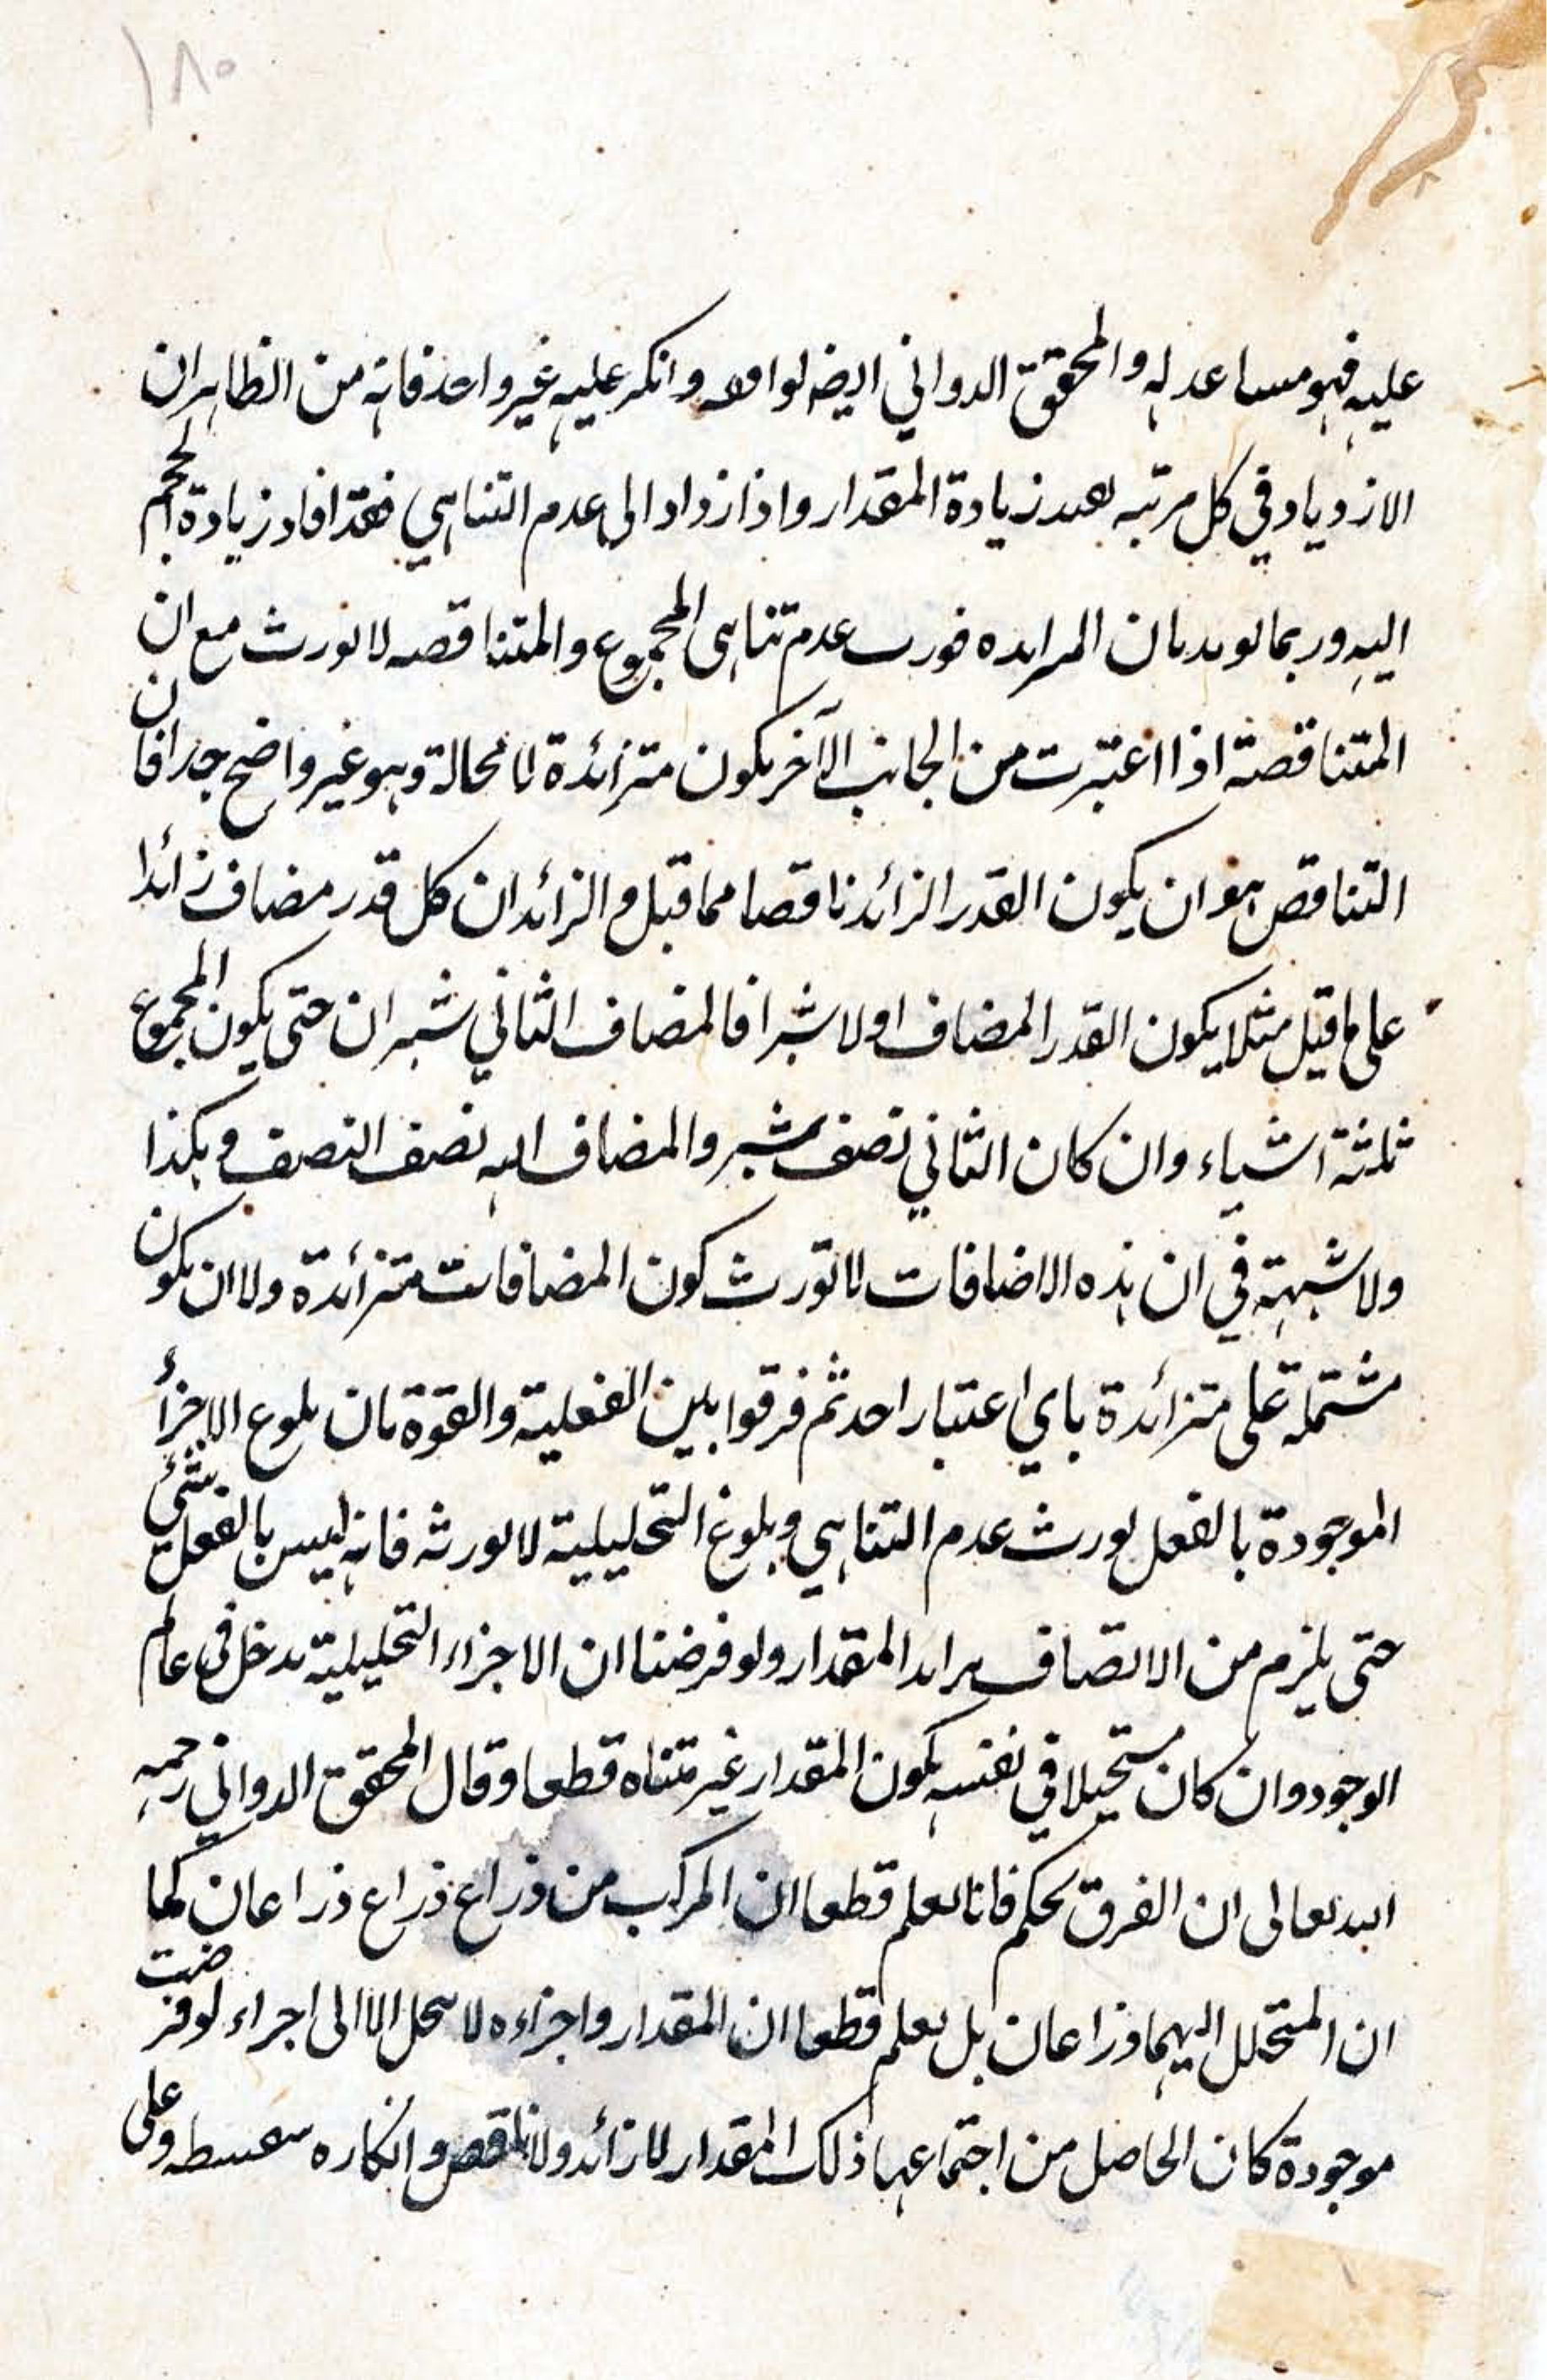 ١٨٠
عليه فهو مساعد له والمحقق الدواني ايضه لوافقه وانكر عليه غير واحد فانه من الظاهر ان
الازدياد في كل مرتبه بعيد زيادة المقدار واذا ازداد الى عدم التناهي فقد افاد زيادة الحجم
اليه وربما لويد بان المرايده فورث عدم تناهى المجموع والمتناقصه لا تورث مع ان
المتناقصة اذا اعتبرت من الجانب الآخر يكون متزائدة لا محالة وهو غير واضح جدا فان
التناقص هو ان يكون القدر الزائد ناقصا مما قبل و الزائد ان كل قدر مضاف زائدا
على ما قيل مثلا يكون القدر المضاف اولا شبرا فالمضاف الثاني شبران حتى يكون المجموع
ثلثة اشياء وان كان الثاني نصف شبر والمضاف اليه نصف النصف وهكذا
ولا شبهة في ان هذه الاضافات لا تورث كون المضافات متزائدة ولا ان يكون
مشتملة على متزائدة باي اعتبار احد ثم فرقوا بين الفعلية والقوة بان بلوغ الاجزأ
الموجودة بالفعل يورث عدم التناهي وبلوغ التحليلية لا يورثه فانه ليس بالفعل شئ
حتى يلزم من الاتصاف برايد المقدار ولو فرضنا ان الاجزاء التحليلية يدخل في عالم
الوجود وان كان مستحيلا في نفسه يكون المقدار غير متناه قطعا وقال المحقق الدواني رحمه
الله تعالى ان الفرق تحكم فانا نعلم قطعا ان المركب من ذراع ذراع ذراعان كما
ان المتحلل اليهما ذراعان بل نعلم قطعا ان المقدار واجزاءه لا ينحل الا الى اجزاء لو فرضت
موجودة كان الحاصل من اجتماعها ذلك المقدار لا زائد ولا ناقص وانكاره سفسطه وعلى